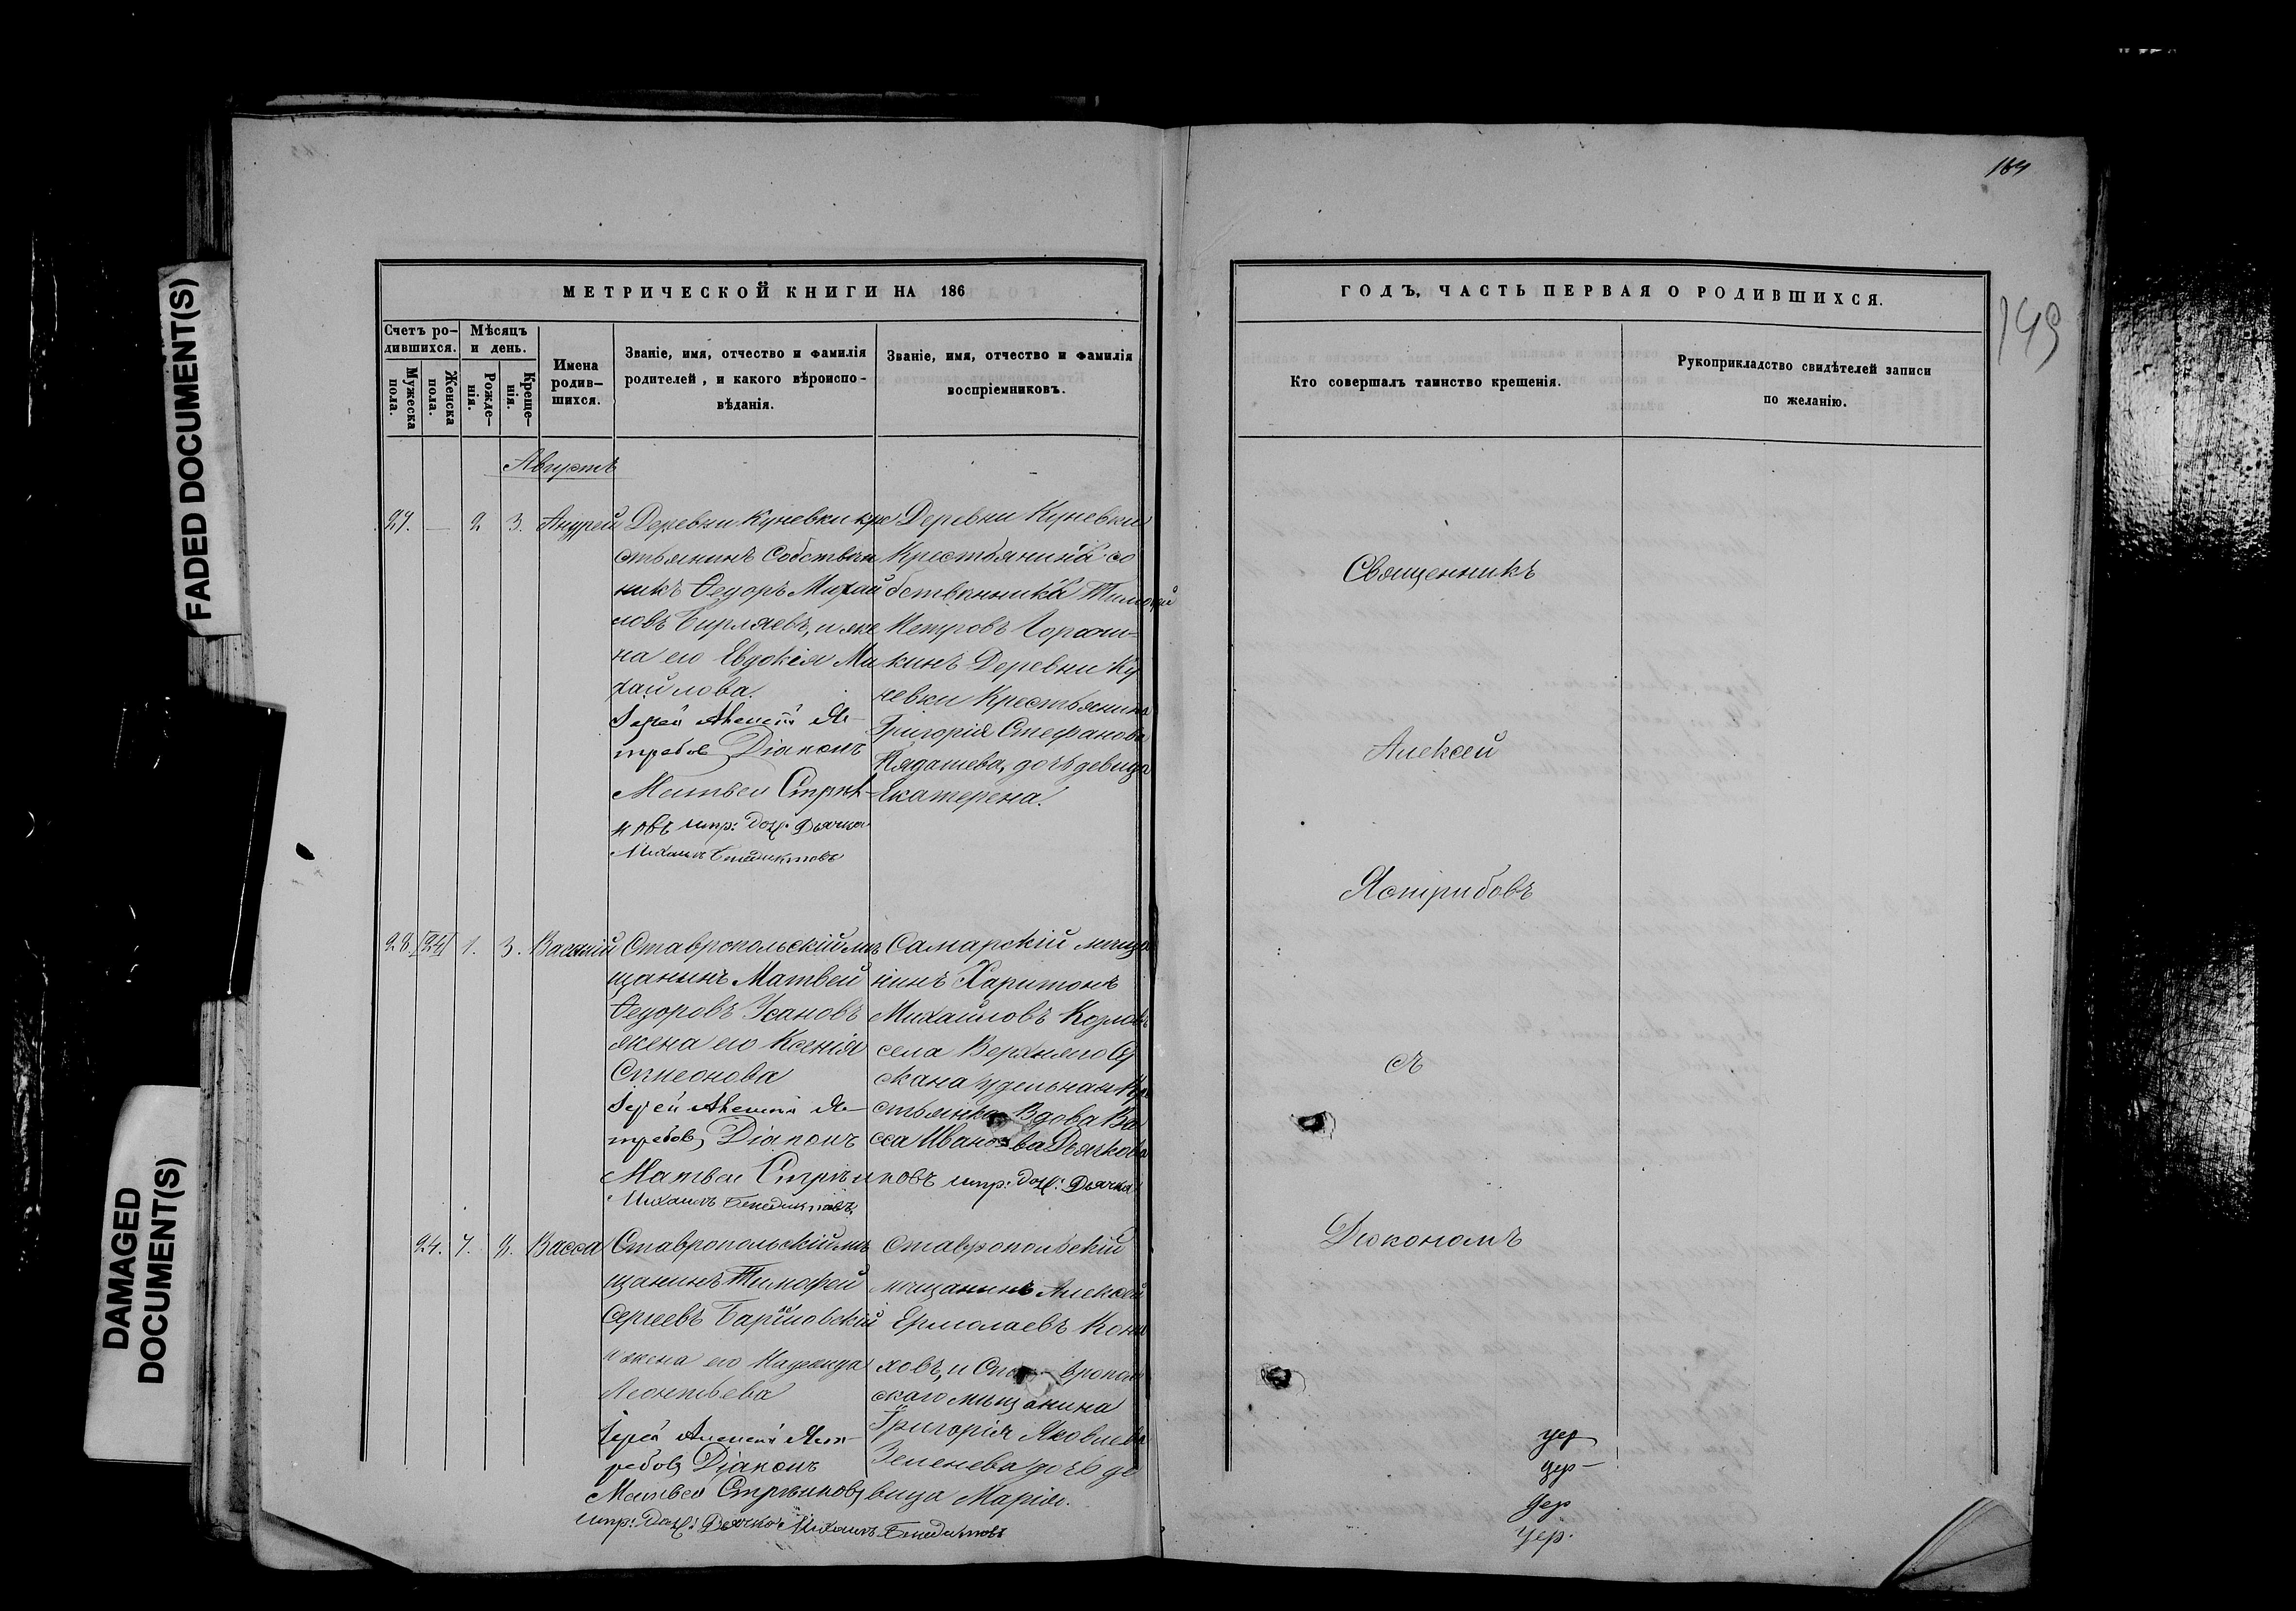 FADED DOCUMENT(S)
DAMAGED
DOCUMENT(S)
МЕТРИЧЕСКОЙ КНИГИ НА 186
Счетъ ро-
дившихся.
Мужеска
пола.
Женска
пола.
Мѣсяцъ
и день.
Рожде-
нія.
Креще-
нія.
Имена
родив-
шихся.
Званіе, имя, отчество и фамилія
родителей, и какого вѣроиспо-
вѣданія.
Званіе, имя, отчество и фамилія
воспріемниковъ.
Августъ
27. — 2 3. Андрей
Деревни Куневки кре
стьянинъ Собствен
никъ Ѳедоръ Михай
ловъ Бирляевъ, и же
на его Евдокія Ми
хайлова.
Іерей Алексій Яс-
требовъ Діаконъ
Матвей Стрѣл-
ковъ испр: долж: Дьячка
Михаилъ Бенедиктовъ
Деревни Куневки
Крестьянинъ со
бственникъ Тимофей
Петровъ
кинъ Деревни Ку
невки Крестьянина
Григорія Стефанова
дочь девица
Екатерена.
28. 24 1. 3. Василій
Ставропольскій мѣ
щанинъ Матвей
Ѳедоровъ Усановъ
жена его Ксенія
Симеонова
Іерей Алексій Яс-
требовъ Діаконъ
Матвей
Михаилъ Бенедиктовъ
Самарскій мѣща
нинъ Харитонъ
Михайловъ Козловъ
села Верхняго
удельная Кре
стьянка Вдова Ва
сса Иванова Дьячкова
ковъ испр: долж: Дьячка
24. 7. 8. Васса
Ставропольскій мѣ
щанинъ Тимофей
Сергеевъ
и жена его Надежда
Леонтьева
Іерей Алексій Яст-
ребовъ Діаконъ
Матвей
испр: долж: Дьячка Михаилъ Бенедиктовъ
Ставропольскій
мѣщанинъ Алексей
Ермолаевъ Коно
ховъ, и Ставрополь
скаго мѣщанина
Григорія Яковлева
Зеленева дочь де
вица Марія.
164
149
ГОДЪ, ЧАСТЬ ПЕРВАЯ О РОДИВШИХСЯ.
Кто совершалъ таинство крещенія.
Рукоприкладство свидѣтелей записи
по желанію.
Священникъ
Алексей
Ястрибовъ
съ
Дюкономъ